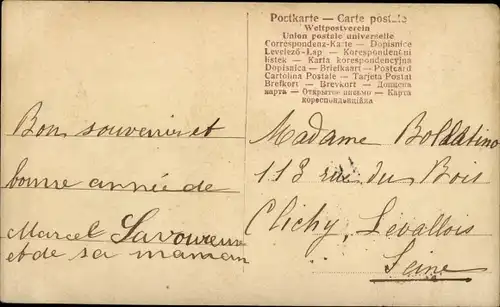 Postkarte — Carte postale
Weltpostverein
Union postale universelle
Correspondenz-Karte — Dopisnice
Levelező-Lap — Korespondentni
listek — Karta korespondencyjna
Dopisnica — Briefkaart — Postcard
Cartolina Postale — Tarjeta Postal
Brefkort — Brevkort — Дописна
карта — Открытое письмо — Карта
кореспонденційна
Bon souvenir et
bonne année de
Marcel Savoureux
et de sa maman
Madame Boldatino
113 rue du Bois
Clichy, Levallois
Seine